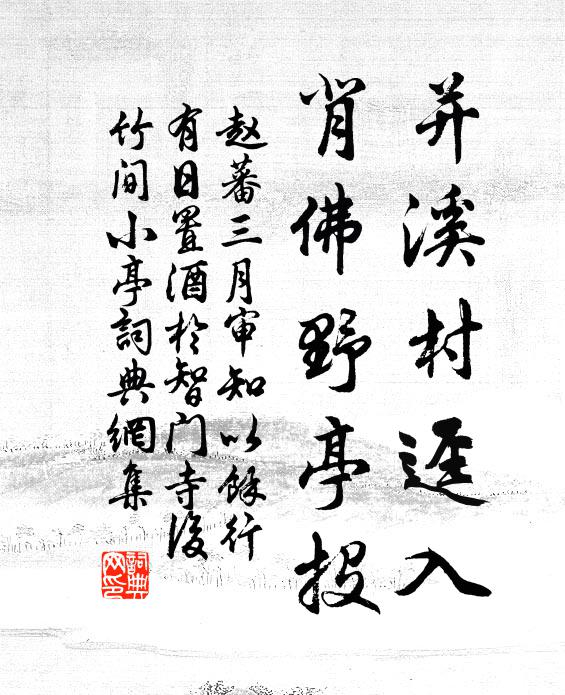 并溪村迳入
背佛野亭投
赵蕃三月审知以余行
有日置酒於智门寺后
竹间小亭詞典網集
詞典网印